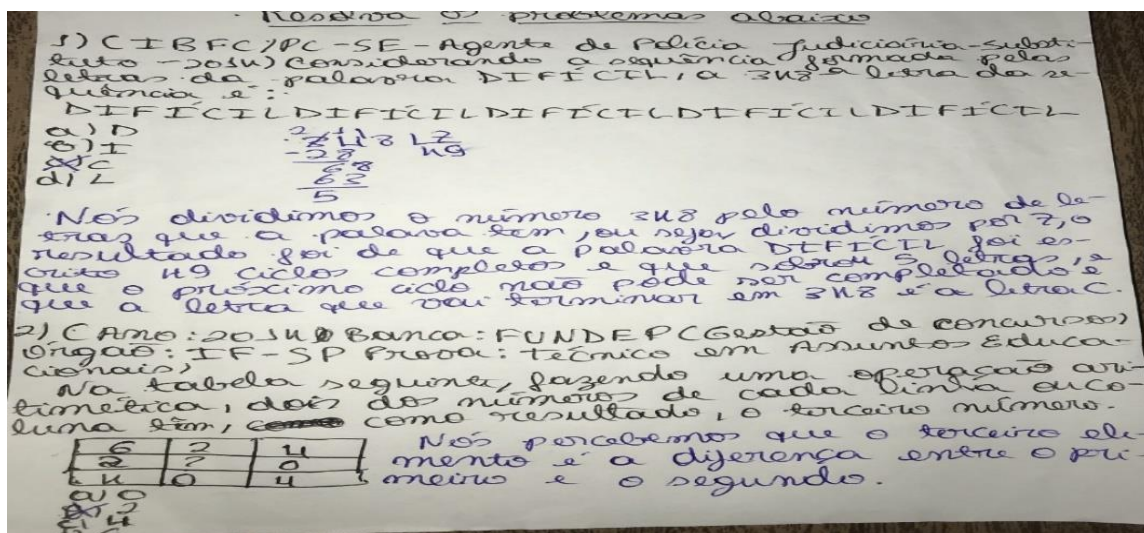 Resolva os problemas abaixo
1) (IBFC/PC-SE-Agente de Polícia Judiciária-Substi-
tuto -2014) Considerando a sequência formada pelas
letras da palavra DIFÍCIL, a 348ª letra da se-
quência é:
DIFÍCILDIFÍCILDIFÍCILDIFÍCILDIFÍCIL
a) D
b) I
c) C
d) L
348 7
-28 49
68
63
5
Nós dividimos o número 348 pelo número de le-
tras que a palava tem, ou seja, dividimos por 7, o
resultado foi de que a palavra DIFÍCIL foi es-
crito 49 ciclos completos e que sobrou 5 letras, e
que o próximo ciclo não pôde ser completado e
que a letra que vai terminar em 348 é a letra C.
2) (Ano: 2014 Banca: FUNDEP (Gestão de concursos)
Órgão: IF-SP Prova: Técnico em Assuntos Educa-
cionais)
Na tabela seguine, fazendo uma operação ari-
timética, dois dos números de cada linha ou co-
luna têm, como resultado, o terceiro número.
6 2 4
2 ? 0
4 0 4
Nós percebemos que o terceiro ele-
mento é a diferença entre o pri-
meiro e o segundo.
a) 0
b) 2
c) 4